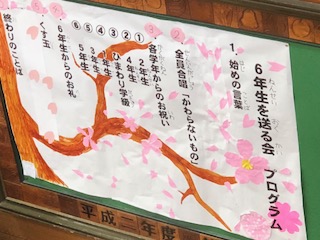 ６年生を送る会　プログラム
ねんせい おく かい
１．始めの言葉
はじ ことば
全員合唱「かわらないもの」
・各学年からのお祝い
①２年生
②ひまわり学級
③１年生
④４年生
⑤３年生
⑥５年生
・６年生からのお礼
くす玉
終わりのことば
平成二年度